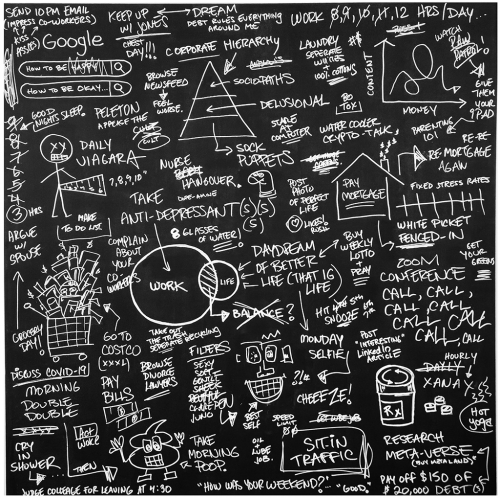 SEND 10 PM EMAIL
(IMPRESS CO-WORKERS)
KISS
ASSES
KEEP UP
W/ JONES
DREAM
DEBT RULES EVERYTHING
AROUND ME
WORK 8, 9, 10, 11, 12 HRS/DAY...
Google
HOW TO BE HAPPY
HOW TO BE OKAY...
CHEST
DAY!!!
CORPORATE HIERARCHY
SOCIOPATHS
DELUSIONAL
SOCK
PUPPETS
LAUNDRY
SEPERATE
WHITES
100% COTTONS
CONTENT
MONEY
WATCH
GIVE
THEM
YOUR
IPAD
BROWSE
NEWSFEED
FEEL
WORST.
GOOD
NIGHTS SLEEP
PELETON
APPEASE THE
CULT
BO
TOX
STARE
AT
COMPUTER
WATER COOLER
CRYPTO-TALK
PARENTING
101
RE-RE-
RE-MORTGAGE
AGAIN
9
8
7
6
5
4
3 HRS
DAILY
VIAGARA
7, 8, 9, 10"
NURSE
HANGOVER
TAKE
ANTI-DEPRESSANT (S)
(S) (S)
POST
PHOTO
OF PERFECT
LIFE
PAY
MORTGAGE
FIXED STRESS RATES
WHITE PICKET
FENCED-IN
MAKE
TO DO LIST
ARGUE
W/
SPOUSE
8 GLASSES
OF WATER!
COMPLAIN
ABOUT
YOUR
CO-WORKERS
WORK
LIFE
BALANCE?
DAYDREAM
OF BETTER
LIFE (THAT IS
LIFE)
BUY
WEEKLY
LOTTO
+
PRAY
GET
YOUR
GREENS
ZOOM
CONFERENCE
CALL, CALL,
CALL, CALL
CALL, CALL
CALL
GROCERY
DAY!
GO TO
COSTCO
(XXXL)
TAKE OUT
THE TRASH
SEPERATE RECYCLING
SNOOZE
FILTERS
SEXY
SOFT
GENTLE
MONDAY
SELFIE
POST
"INTERESTING"
LINKED IN
ARTICLE
DISCUSS COVID-19
MORNING
DOUBLE
DOUBLE
PAY
BILLS
BROWSE
DIVORCE
LAWYERS
?!
CHEEZE!
BEST
SELF
SPEED
LIMIT
HOURLY
DAILY
XANAX
RX
HOT
YOGA
CRY
IN
SHOWER
HOT
WOKE
THEN
TAKE
MORNING
POOP.
OIL
LUBE
JOB.
SIT IN
TRAFFIC
RESEARCH
META-VERSE
JUDGE COLLEAGE FOR LEAVING AT 4:30
"HOW WAS YOUR WEEKEND?..."
"GOOD"
PAY OFF $150 OF
$20,000 DEBT